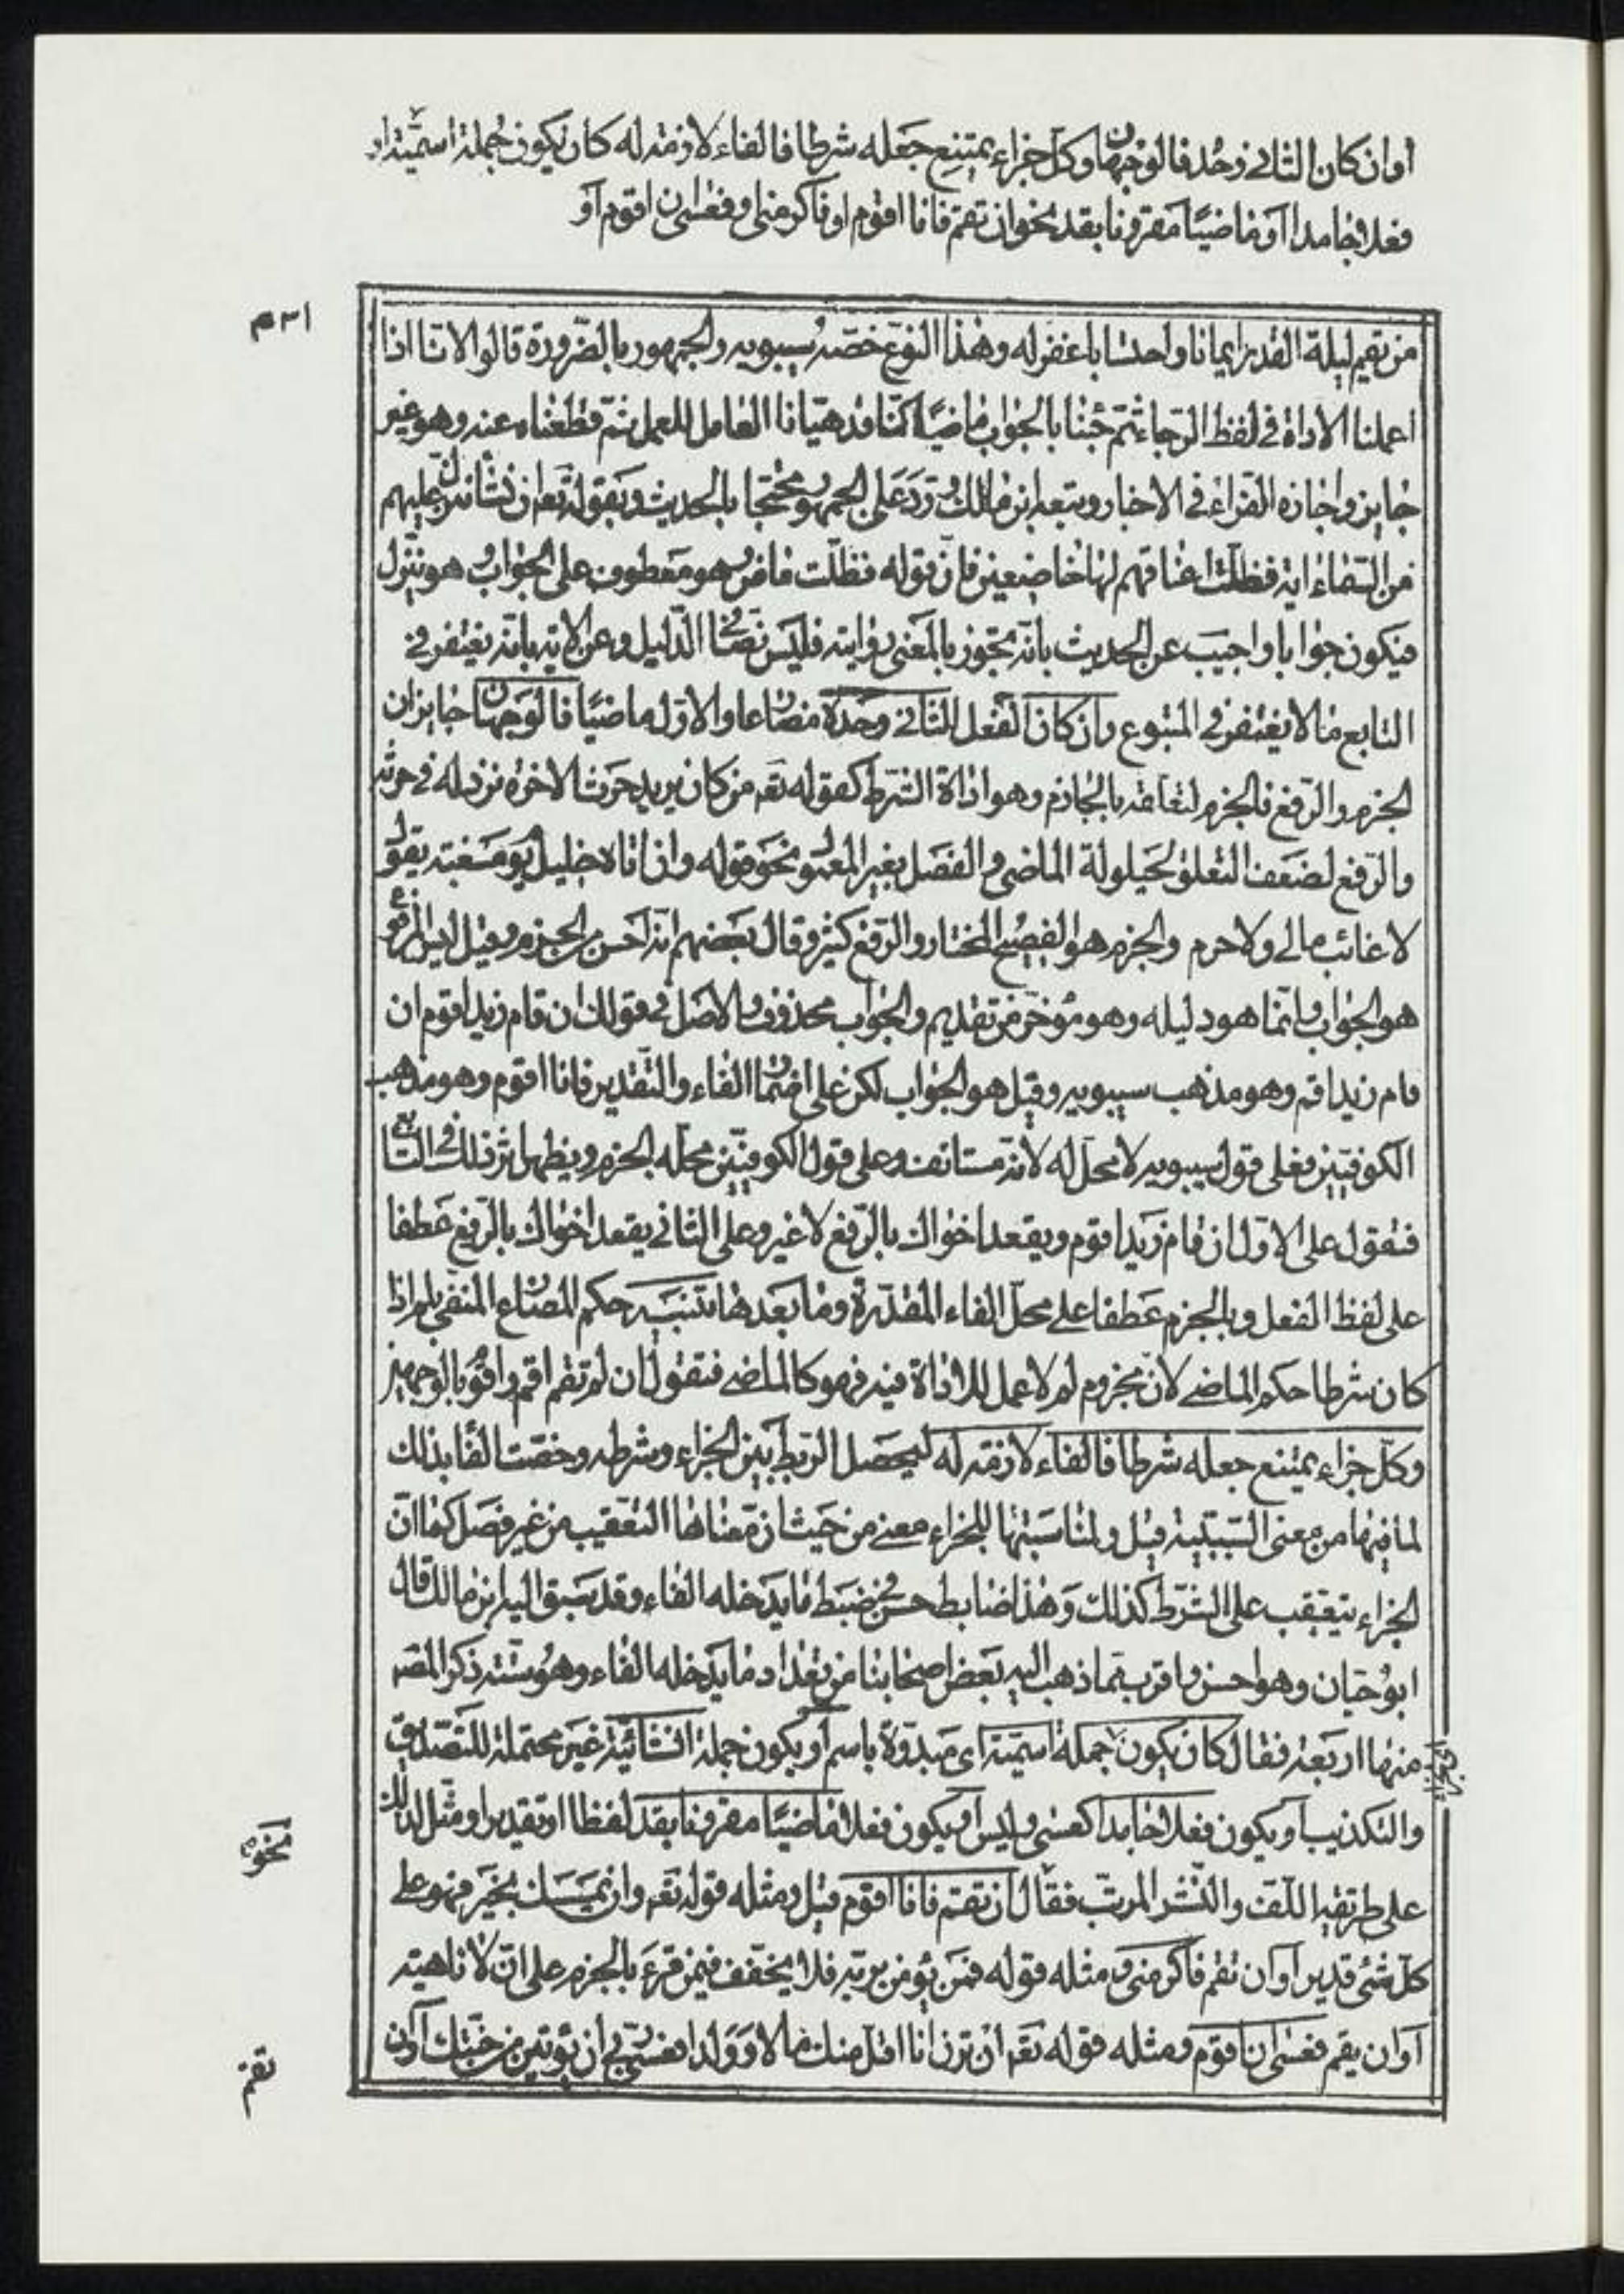 او ان كان الثانى وحده فالوجهان وكل جزاء يمتنع جعله شرطا فالفاء لازمة له كان يكون جملة اسمية او
فعلا جامدا او ماضيا مقرونا بقد نحو ان تقم فانا اقوم او فاكرمنى او فعسى ان اقوم او
١٣١م
من يقم ليلة القدر ايمانا واحتسابا غفر له وهذا النوع خصّه سيبويه والجمهور بالضّرورة قالوا لانا اذا
اعملنا الاداة فى لفظ الشرط ثم جئنا بالجواب ماضيا كنّا قد هيّانا العامل للعمل ثمّ قطعناه عنه وهو غير
جايز واجازه الفراء فى الاختيار وتبعه ابن مالك وردّ على الجمهور محتجا بالحديث وبقوله تعه ان نشأ ننزل عليهم
من السّماء اية فظلّت اعناقهم لها خاضعين فانّ قوله فظلّت ماض وهو معطوف على الجواب وهو ننزّل
فيكون جوابا واجيب عن الحديث بانّه تجوز بالمعنى روايته فليس نصّا فى الدّليل وعن الاية بانّه يغتفر فى
التابع ما لا يغتفر فى المتبوع وان كان الفعل الثانى وحده مضارعا والاوّل ماضيا فالوجهان جايزان
الجزم والرّفع فالجزم لتعلقه بالجازم وهو اداة الشرط كقوله تعه من كان يريد حرث الاخرة نزد له فى حرثه
والرّفع لضعف التعلق لحيلولة الماضى والفصل بغير المعمول نحو قوله وان اتاه خليل يوم مسغبة يقول
لا غائب مالى ولا حرم والجزم هو الفصيح المختار والرّفع كثير وقال بعضهم انّه احسن من الجزم وقيل ليس المرفوع
هو الجواب وانّما هو دليله وهو مؤخّر من تقديم والجواب محذوف والاصل فى قولك ان قام زيد اقوم ان
قام زيد اقم وهو مذهب سيبويه وقيل هو الجواب لكن على اضمار الفاء والتقدير فانا اقوم وهو مذهب
الكوفيّين فعلى قول سيبويه لا محل له لانه مستانف وعلى قول الكوفيّين محلّه الجزم ويظهر اثر ذلك فى التابع
فنقول على الاوّل ان قام زيد اقوم ويقعد اخواك بالرّفع لا غير وعلى الثانى يقعد اخواك بالرّفع عطفا
على لفظ الفعل وبالجزم عطفا على محلّ الفاء المقدّرة وما بعدها تنبيه حكم المضارع المنفى بلم اذا
كان شرطا حكم الماضى لانّ مجزوم لم لا عمل للاداة فيه فهو كالماضى فتقول ان لم تقم اقم واقوم بالوجهين
وكلّ جزاء يمتنع جعله شرطا فالفاء لازمة له ليحصل الرّبط بين الجزاء وشرطه وخصّت الفا بذلك
لما فيها من معنى السّببيّة قيل ولمناسبتها للجزاء معنى من حيث ان معناها التعقيب من غير فصل كما انّ
الجزاء يتعقب على الشّرط كذلك وهذا ضابط حسن فى ضبط ما يدخله الفاء وقد سبق اليه ابن مالك قال
ابو حيّان وهو احسن واقرب ممّا ذهب اليه بعض اصحابنا من تعداد ما يدخله الفاء وهو ستة ذكر المصه
منها اربعة فقال كان يكون جملة اسميّة اى مبدوّة باسم او يكون جملة انشائيّة غير محتملة للتصديق
والتكذيب او يكون فعلا جامدا كعسى وليس او يكون فعلا ماضيّا مقرونا بقد لفظا او تقديرا ومثّل لذلك
نحو
على طريقة اللّف والنّشر المرتّب فقال ان تقم فانا اقوم قيل ومثله قوله تعه وان يمسسك بخير فهو على
كلّ شئ قدير او ان تقم فاكرمنى ومثله قوله فمن يؤمن بربّه فلا يخفف فيمن قرء بالجزم على انّ لا ناهية
او ان يقم فعسى ان اقوم ومثله قوله تعه ان ترن انا اقلّ منك مالا وولدا فعسى ربّى ان يؤتين من جنّتك او ان
تقم